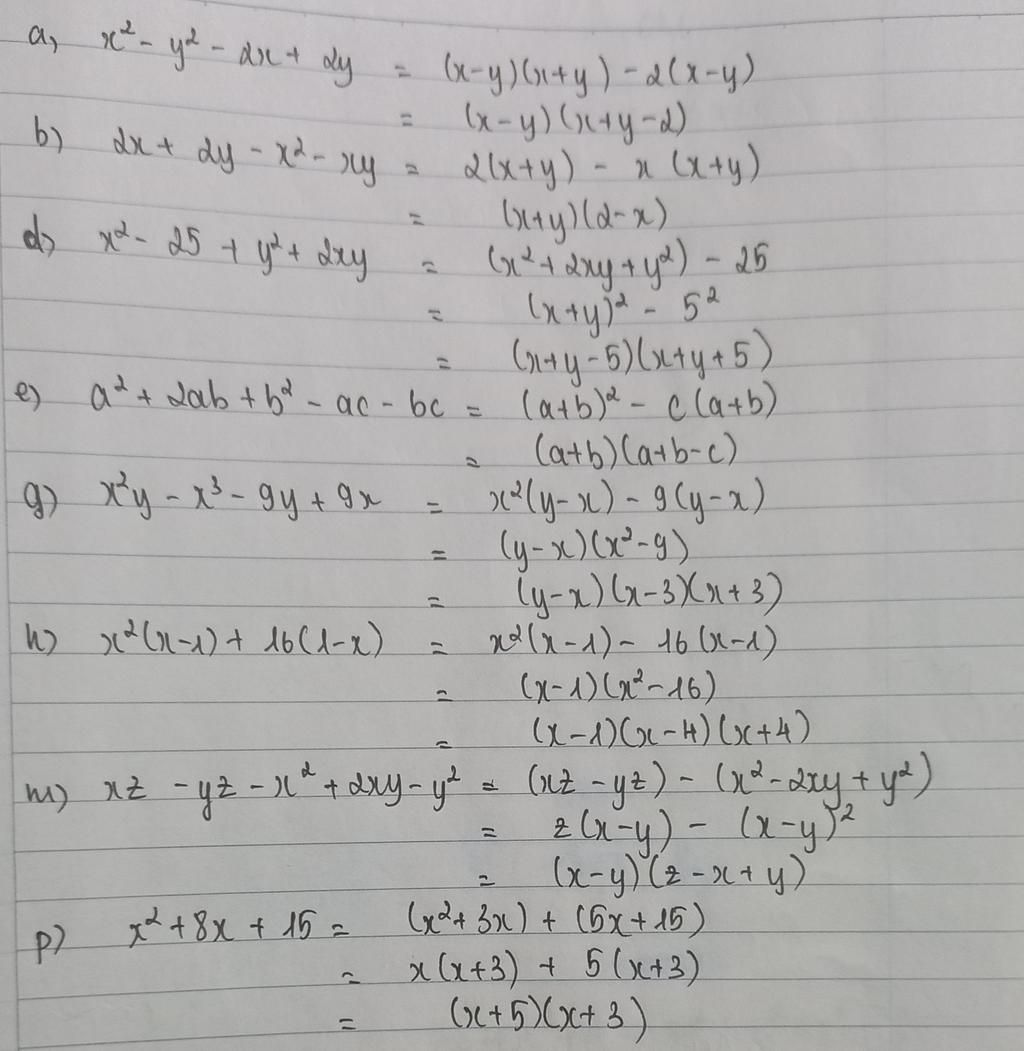 a, x² - y² - 2x + 2y = (x-y)(x+y) - 2(x-y)
= (x-y)(x+y-2)
b) 2x + 2y - x² - xy = 2(x+y) - x(x+y)
= (x+y)(2-x)
d) x² - 25 + y² + 2xy = (x² + 2xy + y²) - 25
= (x+y)² - 5²
= (x+y-5)(x+y+5)
e) a² + 2ab + b² - ac - bc = (a+b)² - c(a+b)
= (a+b)(a+b-c)
g) x²y - x³ - 9y + 9x = x²(y-x) - 9(y-x)
= (y-x)(x²-9)
= (y-x)(x-3)(x+3)
h) x²(x-1) + 16(1-x) = x²(x-1) - 16(x-1)
= (x-1)(x²-16)
= (x-1)(x-4)(x+4)
m) xz - yz - x² + 2xy - y² = (xz - yz) - (x² - 2xy + y²)
= z(x-y) - (x-y)²
= (x-y)(z-x+y)
p) x² + 8x + 15 = (x² + 3x) + (5x + 15)
= x(x+3) + 5(x+3)
= (x+5)(x+3)